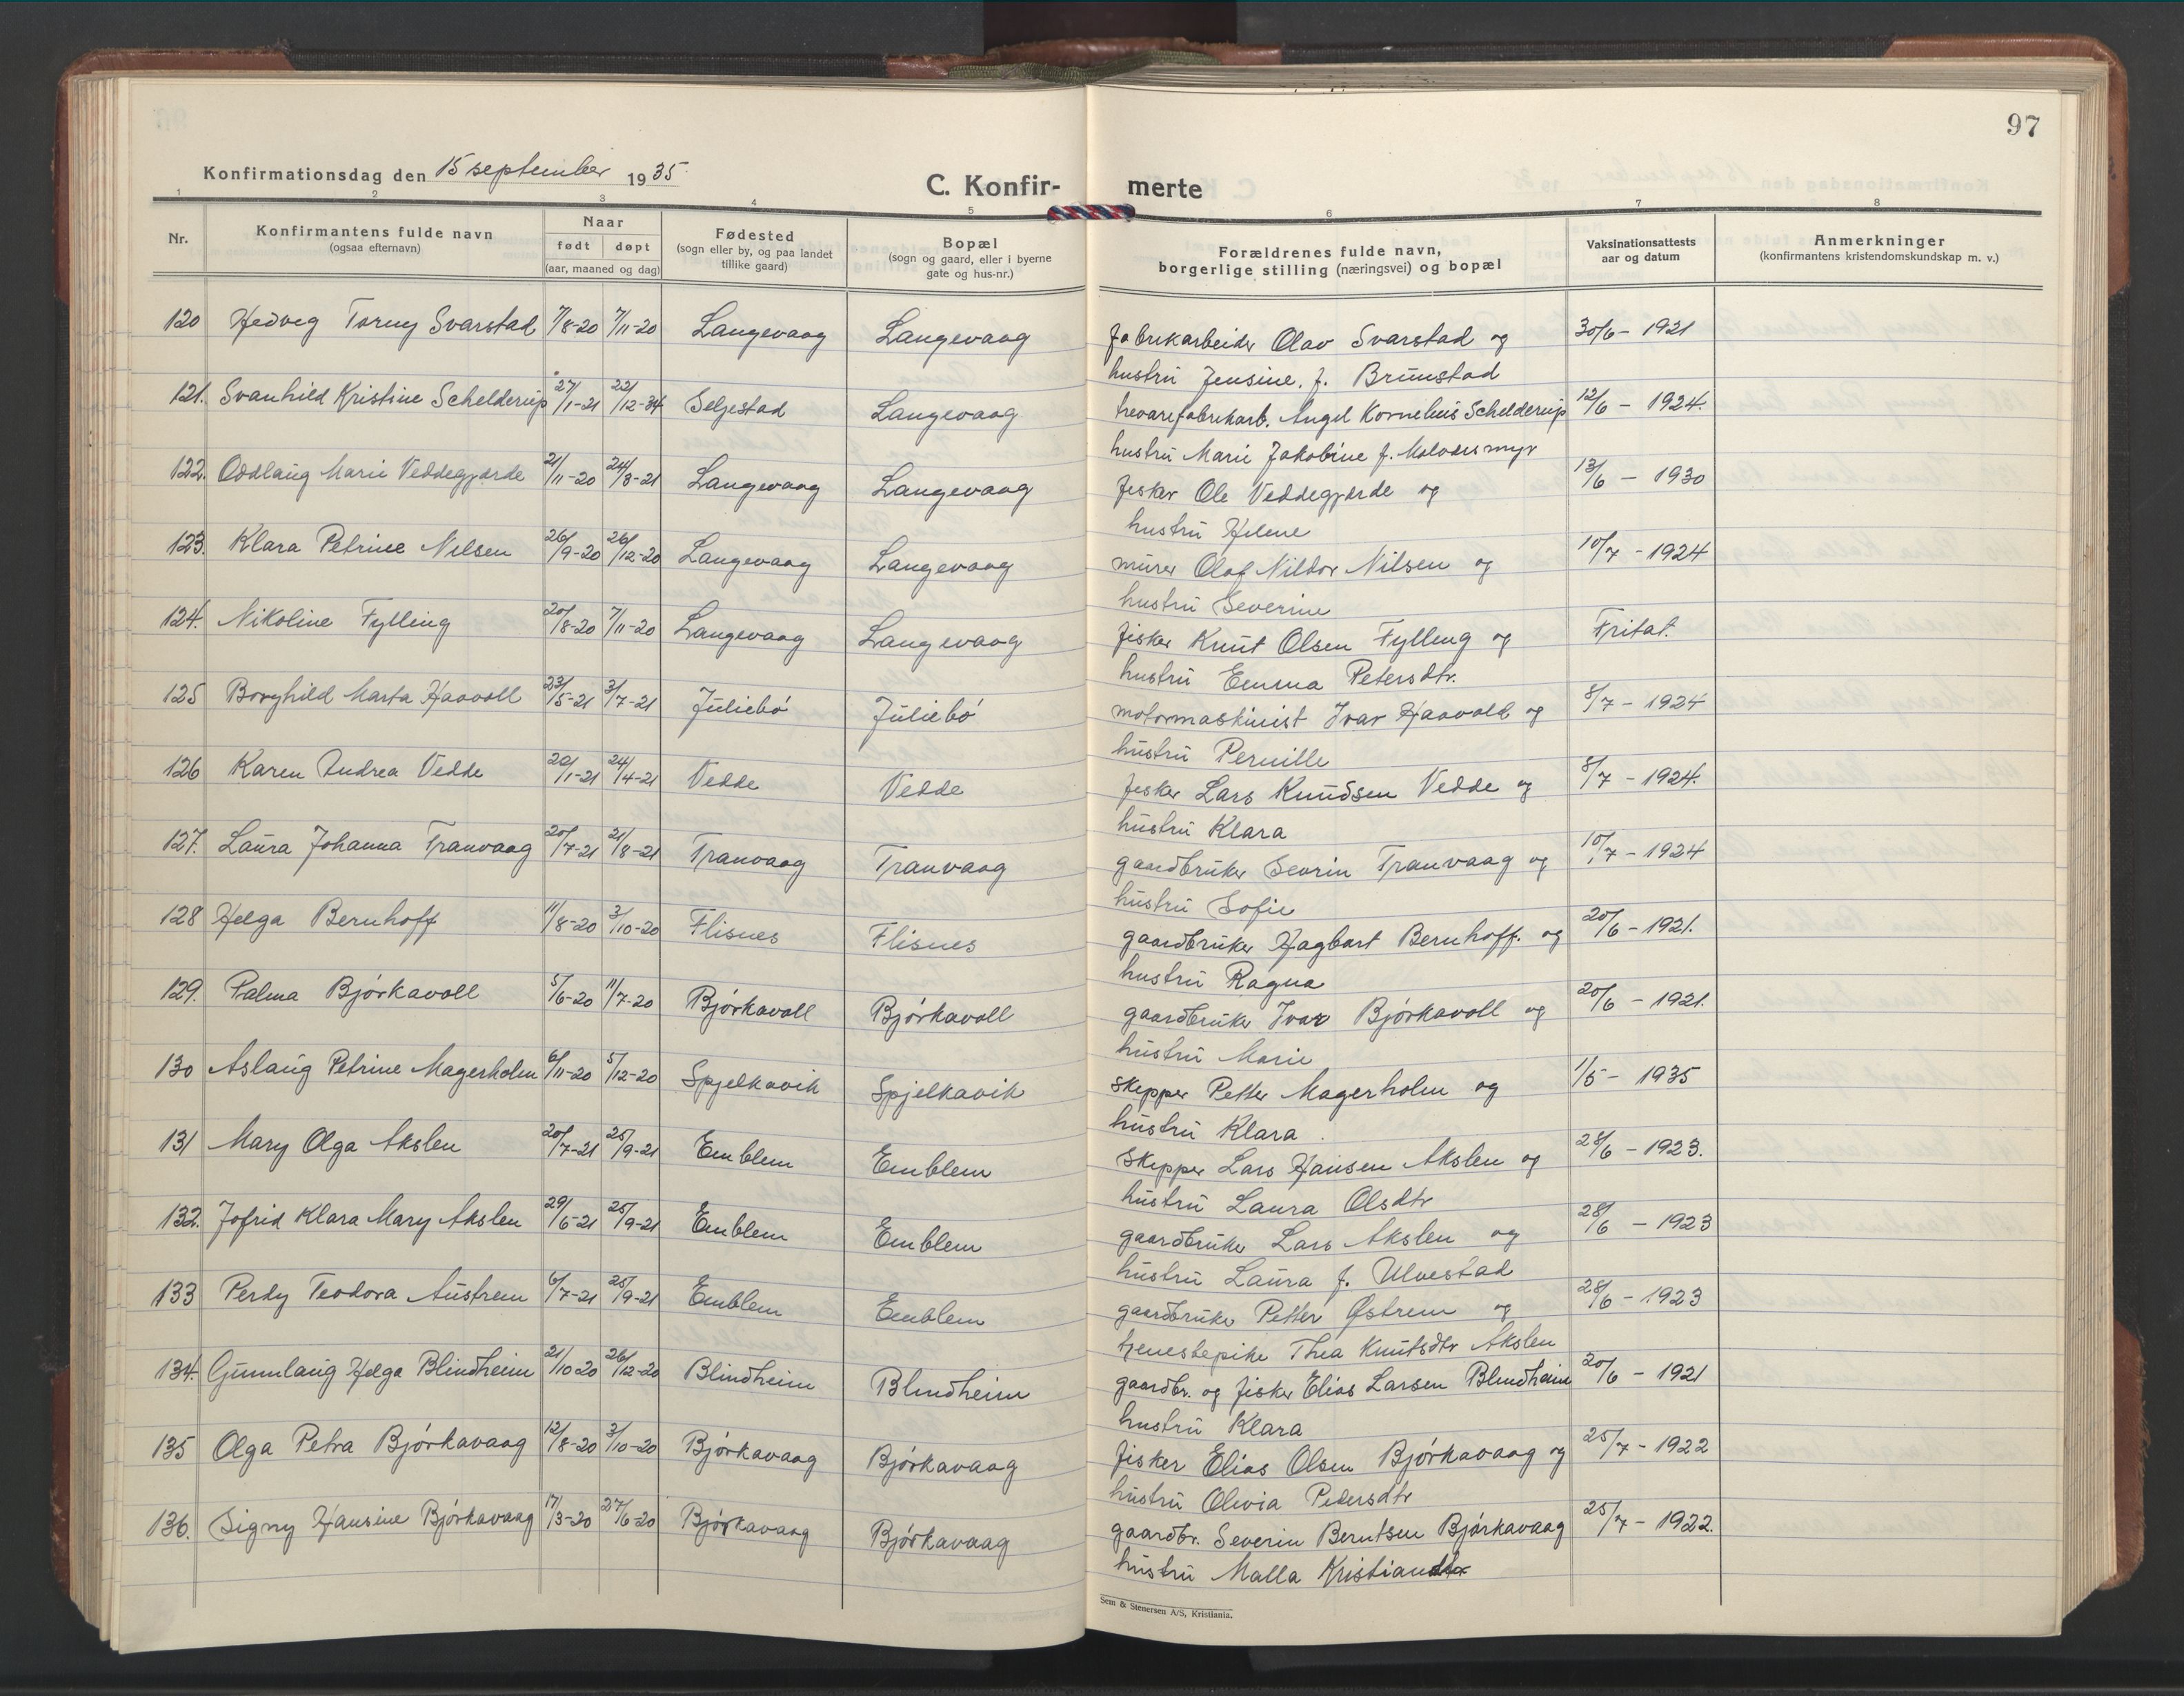 97
Konfirmationsdag den 15 september 1935.
C. Konfir- merte
1 2 3 4 5 6 7 8
Nr.
Konfirmantens fulde navn
(ogsaa efternavn)
Naar
født døpt
(aar, maaned og dag)
Fødested
(sogn eller by, og paa landet
tillike gaard)
Bopæl
(sogn og gaard, eller i byerne
gate og hus-nr.)
Forældrenes fulde navn,
borgerlige stilling (næringsvei) og bopæl
Vaksinationsattests
aar og datum
Anmerkninger
(konfirmantens kristendomskundskap m. v.)
120 Hedveg Torny Svarstad 7/8-20 7/11-20 Langevaag Langevaag fabrikarbeider Olav Svarstad og 30/6 - 1921
hustrü Jensine. f. Brünstad
121. Svanhild Kristine Schelderup 27/1-21 22/12-34 Seljestad Langevaag trevarefabrikarb. Angel Kornelius Schelderup 12/6 - 1924.
hustrü Marie Jakobine f.
122. Oddlaüg Marie Veddegjærde 21/11-20 24/3-21 Langevaag Langevaag fisker Ole Veddegjærde og 13/6 - 1930
hustrü Helene
123. Klara Petrine Nilsen 26/9-20 26/12-20 Langevaag Langevaag mürer Olaf Nildor Nilsen og 10/7 - 1924
hustrü Severine
124. Nikoline Fylling 20/8-20 7/11-20 Langevaag Langevaag fisker Knut Olsen Fylling og Fritat.
hustrü Emma Petersdtr.
125 Borghild Marta Haavoll 23/5-21 3/7-21 Jüliebö Jüliebö motormaskinist Ivar Haavold og 8/7 - 1924
hüstrü Pernille
126 Karen Andrea Vedde 20/1-21 24/4-21 Vedde Vedde fisker Lars Knudsen Vedde og 8/7 - 1924.
hüstrü Klara
127. Laüra Johanna Tranvaag 20/7-21 21/8-21 Tranvaag Tranvaag gaardbrüker Sevrin Tranvaag og 10/7 - 1924
hüstrü Sofie
128 Helga Bernhoff 11/8-20 3/10-20 Flisnes Flisnes gaardbrüker Hagbart Bernhoff. og 20/6 - 1921.
hustrü Ragna
129. Palma Björkavoll 5/6-20 11/7-20 Björkavoll Björkavoll gaardbrüker Ivar Björkavoll og 20/6 - 1921.
hüstrü Marie
130 Aslaüg Petrine Magerholm 6/11-20 5/12-20 Spjelkavik Spjelkavik skipper Petter Magerholm og 1/5 - 1935
hüstrü Klara
131 Mary Olga Akslen 20/7-21 25/9-21 Emblem Emblem skipper Lars Hansen Akslen og 28/6 - 1923.
hüstrü Laura Olsdtr
132. Jofrid Klara Mary Akslen 29/6-21 25/9-21 Emblem Emblem gaardbrüker Lars Akslen og 28/6 - 1923
hüstrü Laüra f. Ulvestad
133 Perdy Teodora Aüstrem 6/7-21 25/9-21 Emblem Emblem gaardbrüker Petter Østrem og 28/6 - 1923
tjenestepike Thea Knütsdtr Akslen
134. Günnlaüg Helga Blindheim 21/10-20 26/12-20 Blindheim Blindheim gaardbr. og fisker Elias Larsen Blindheim 20/6 - 1921
hustrü Klara
135 Olga Petra Björkavaag 12/8-20 3/10-20 Björkavaag Björkavaag fisker Elias Olsen Björkavaag og 25/7 - 1922
hüstrü Olivia Pedersdtr
136. Signy Hansine Björkavaag 17/3-20 27/6-20 Björkavaag Björkavaag gaardbr. Severin Berntsen Björkavaag 25/7 - 1922.
hüstrü Malla Kristiansdtr
Sem & Stenersen A/S, Kristiania.